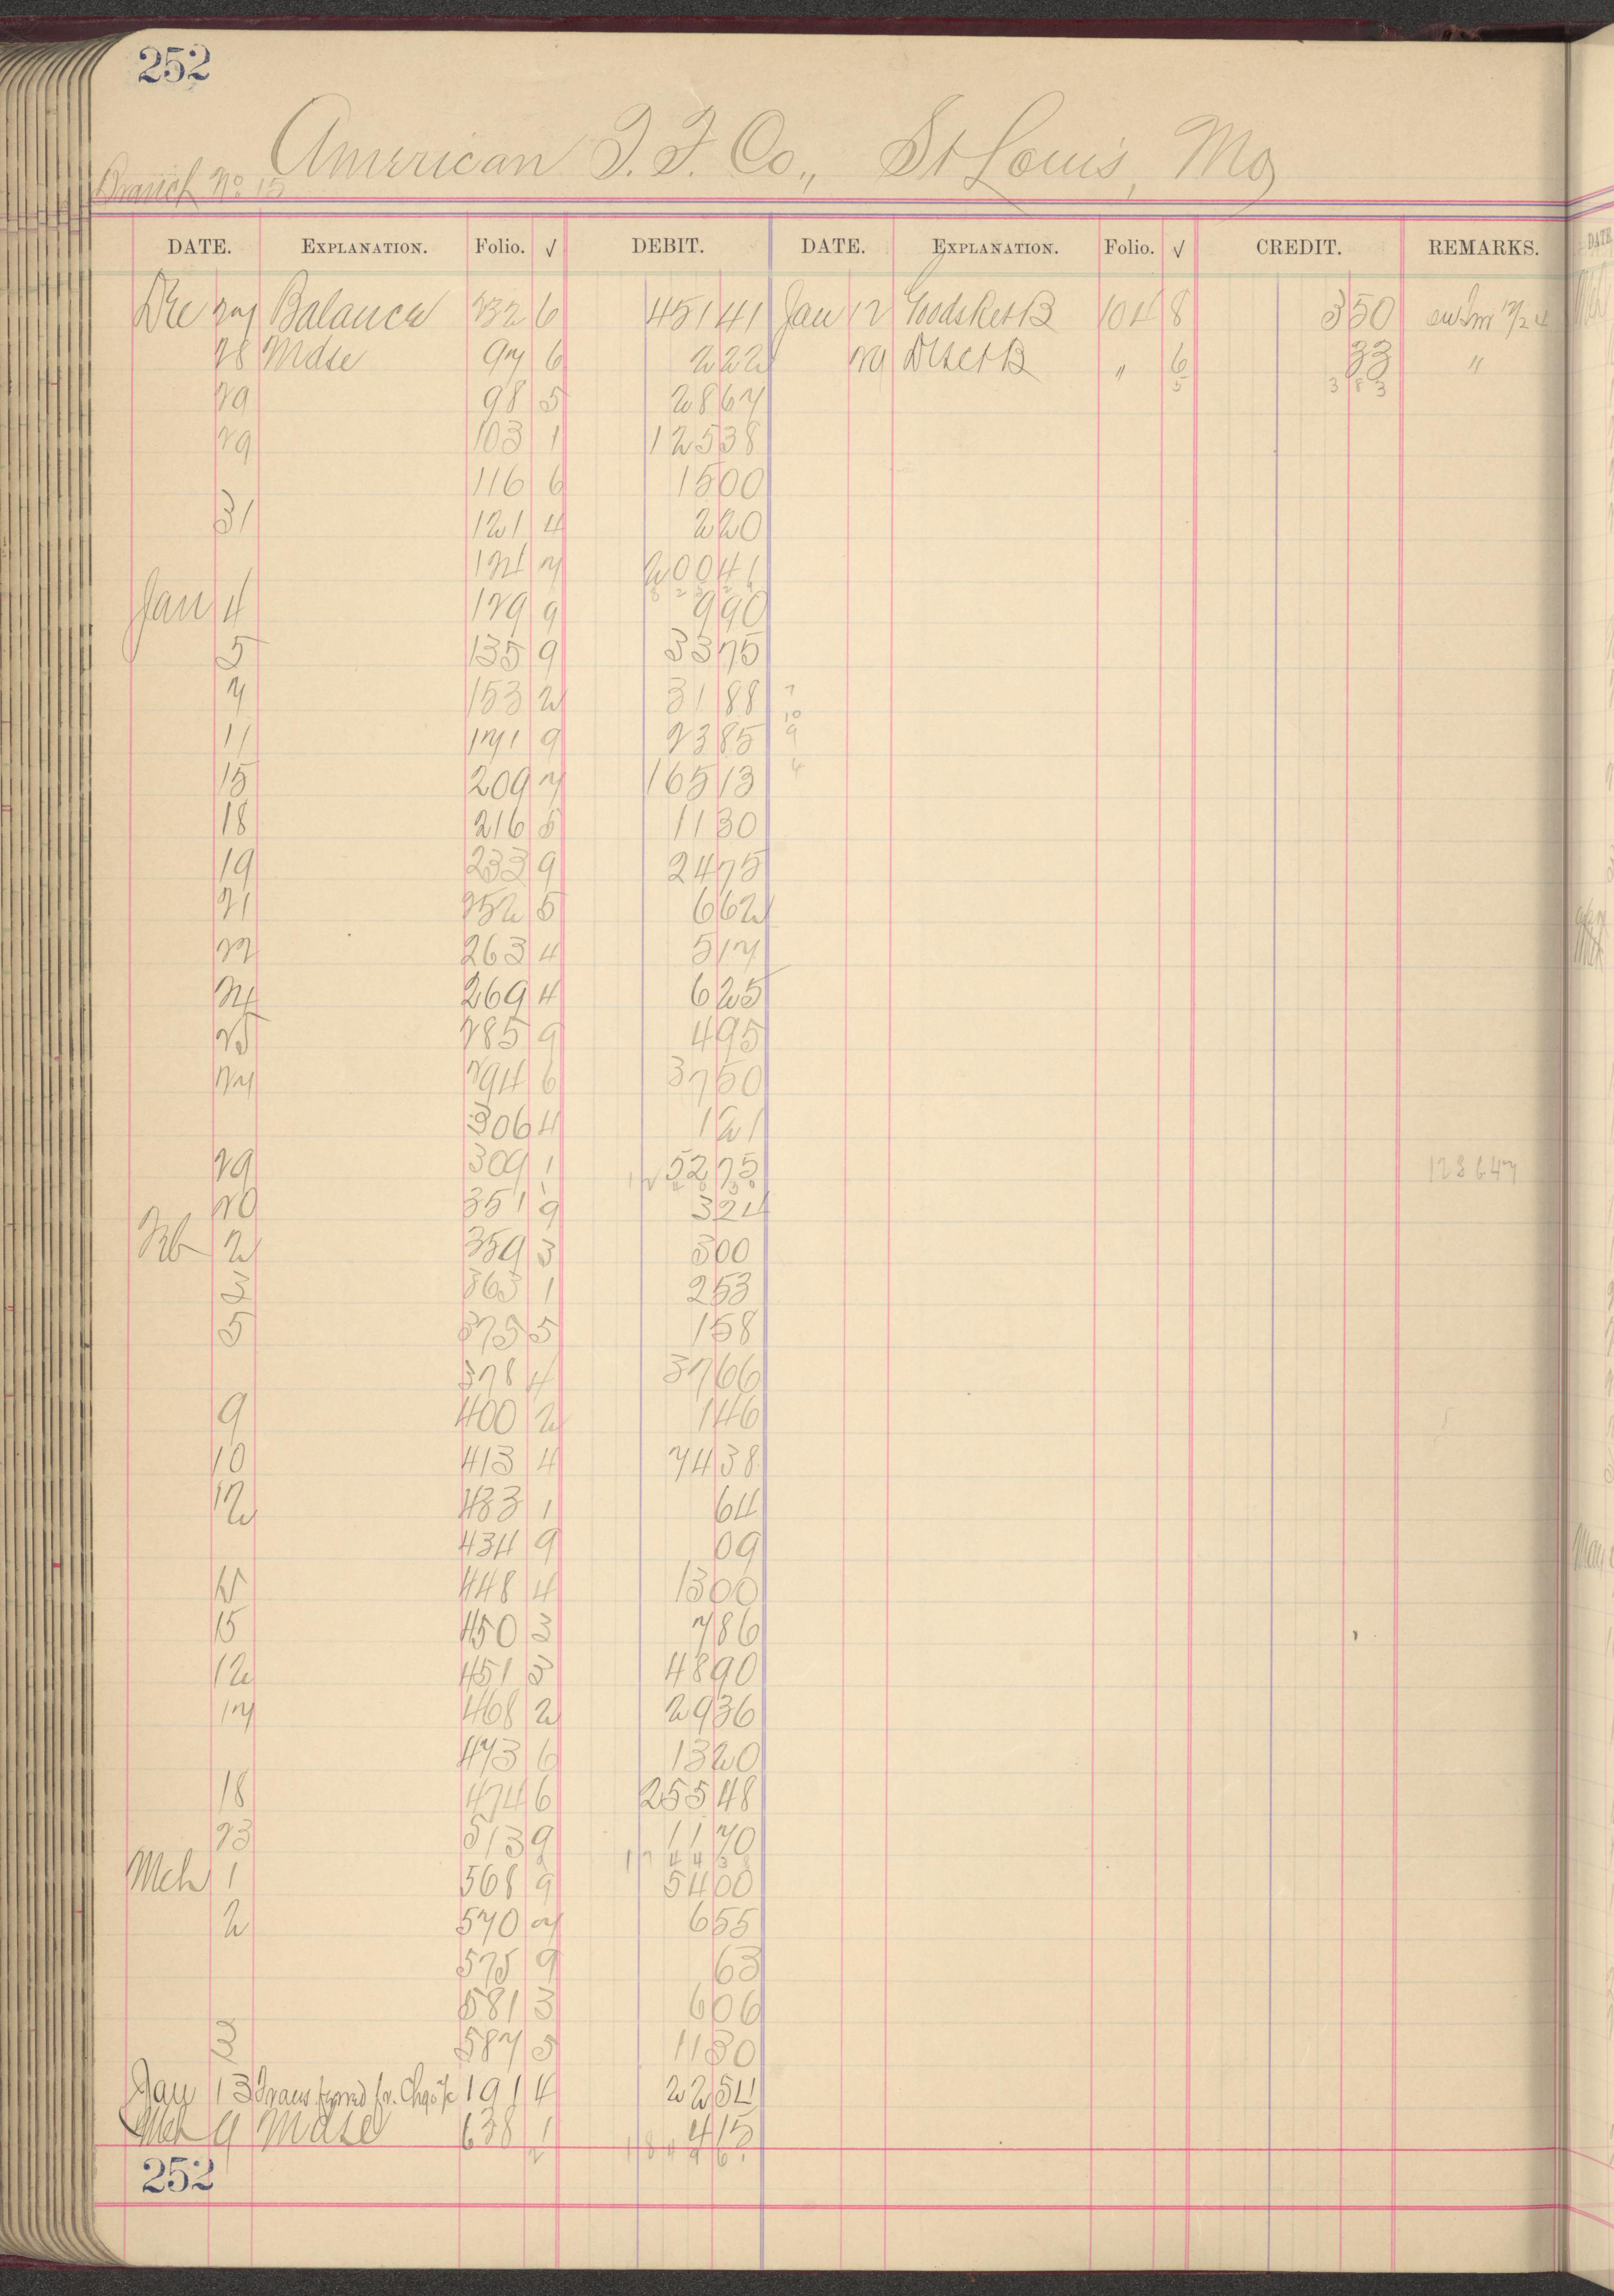 252
American T. F. Co., St Louis, Mo
Branch No 15
DATE. EXPLANATION. Folio. √ DEBIT. DATE. EXPLANATION. Folio. √ CREDIT. REMARKS.
Dec 27 Balance 232 6 451 41 Jan 12 Goods Ret B 104 8 3 50
28 Mdse 97 6 2 22 Disct B " 6 33 "
29 98 5 28 67 3 83
29 103 1 125 38
116 6 15 00
31 121 4 2 20
124 7 200 41
Jan 4 129 9 9 90
5 135 9 33 75
7 153 2 31 88
11 171 9 23 85
15 209 7 165 13
18 216 5 11 30
19 233 9 24 75
21 252 5 6 62
22 263 4 5 17
24 269 4 6 25
25 285 9 4 95
27 294 6 37 50
306 4 1 21
29 309 1 52 75 1286 47
20 351 9 3 24
Feb 2 359 3 3 00
3 363 1 2 53
5 375 5 1 58
378 4 37 66
9 400 2 1 46
10 413 4 74 38
12 433 1 64
434 9 09
448 4 13 00
15 450 3 7 86
12 451 3 48 90
17 468 2 29 36
473 6 13 20
18 474 6 255 48
23 513 9 11 70
Mch 1 568 9 54 00
2 570 7 6 55
575 9 63
581 3 6 06
3 587 5 11 30
Jan 13 Transferred fr. Chgo % 191 4 22 54
Mch 9 Mdse 638 1 4 15
252